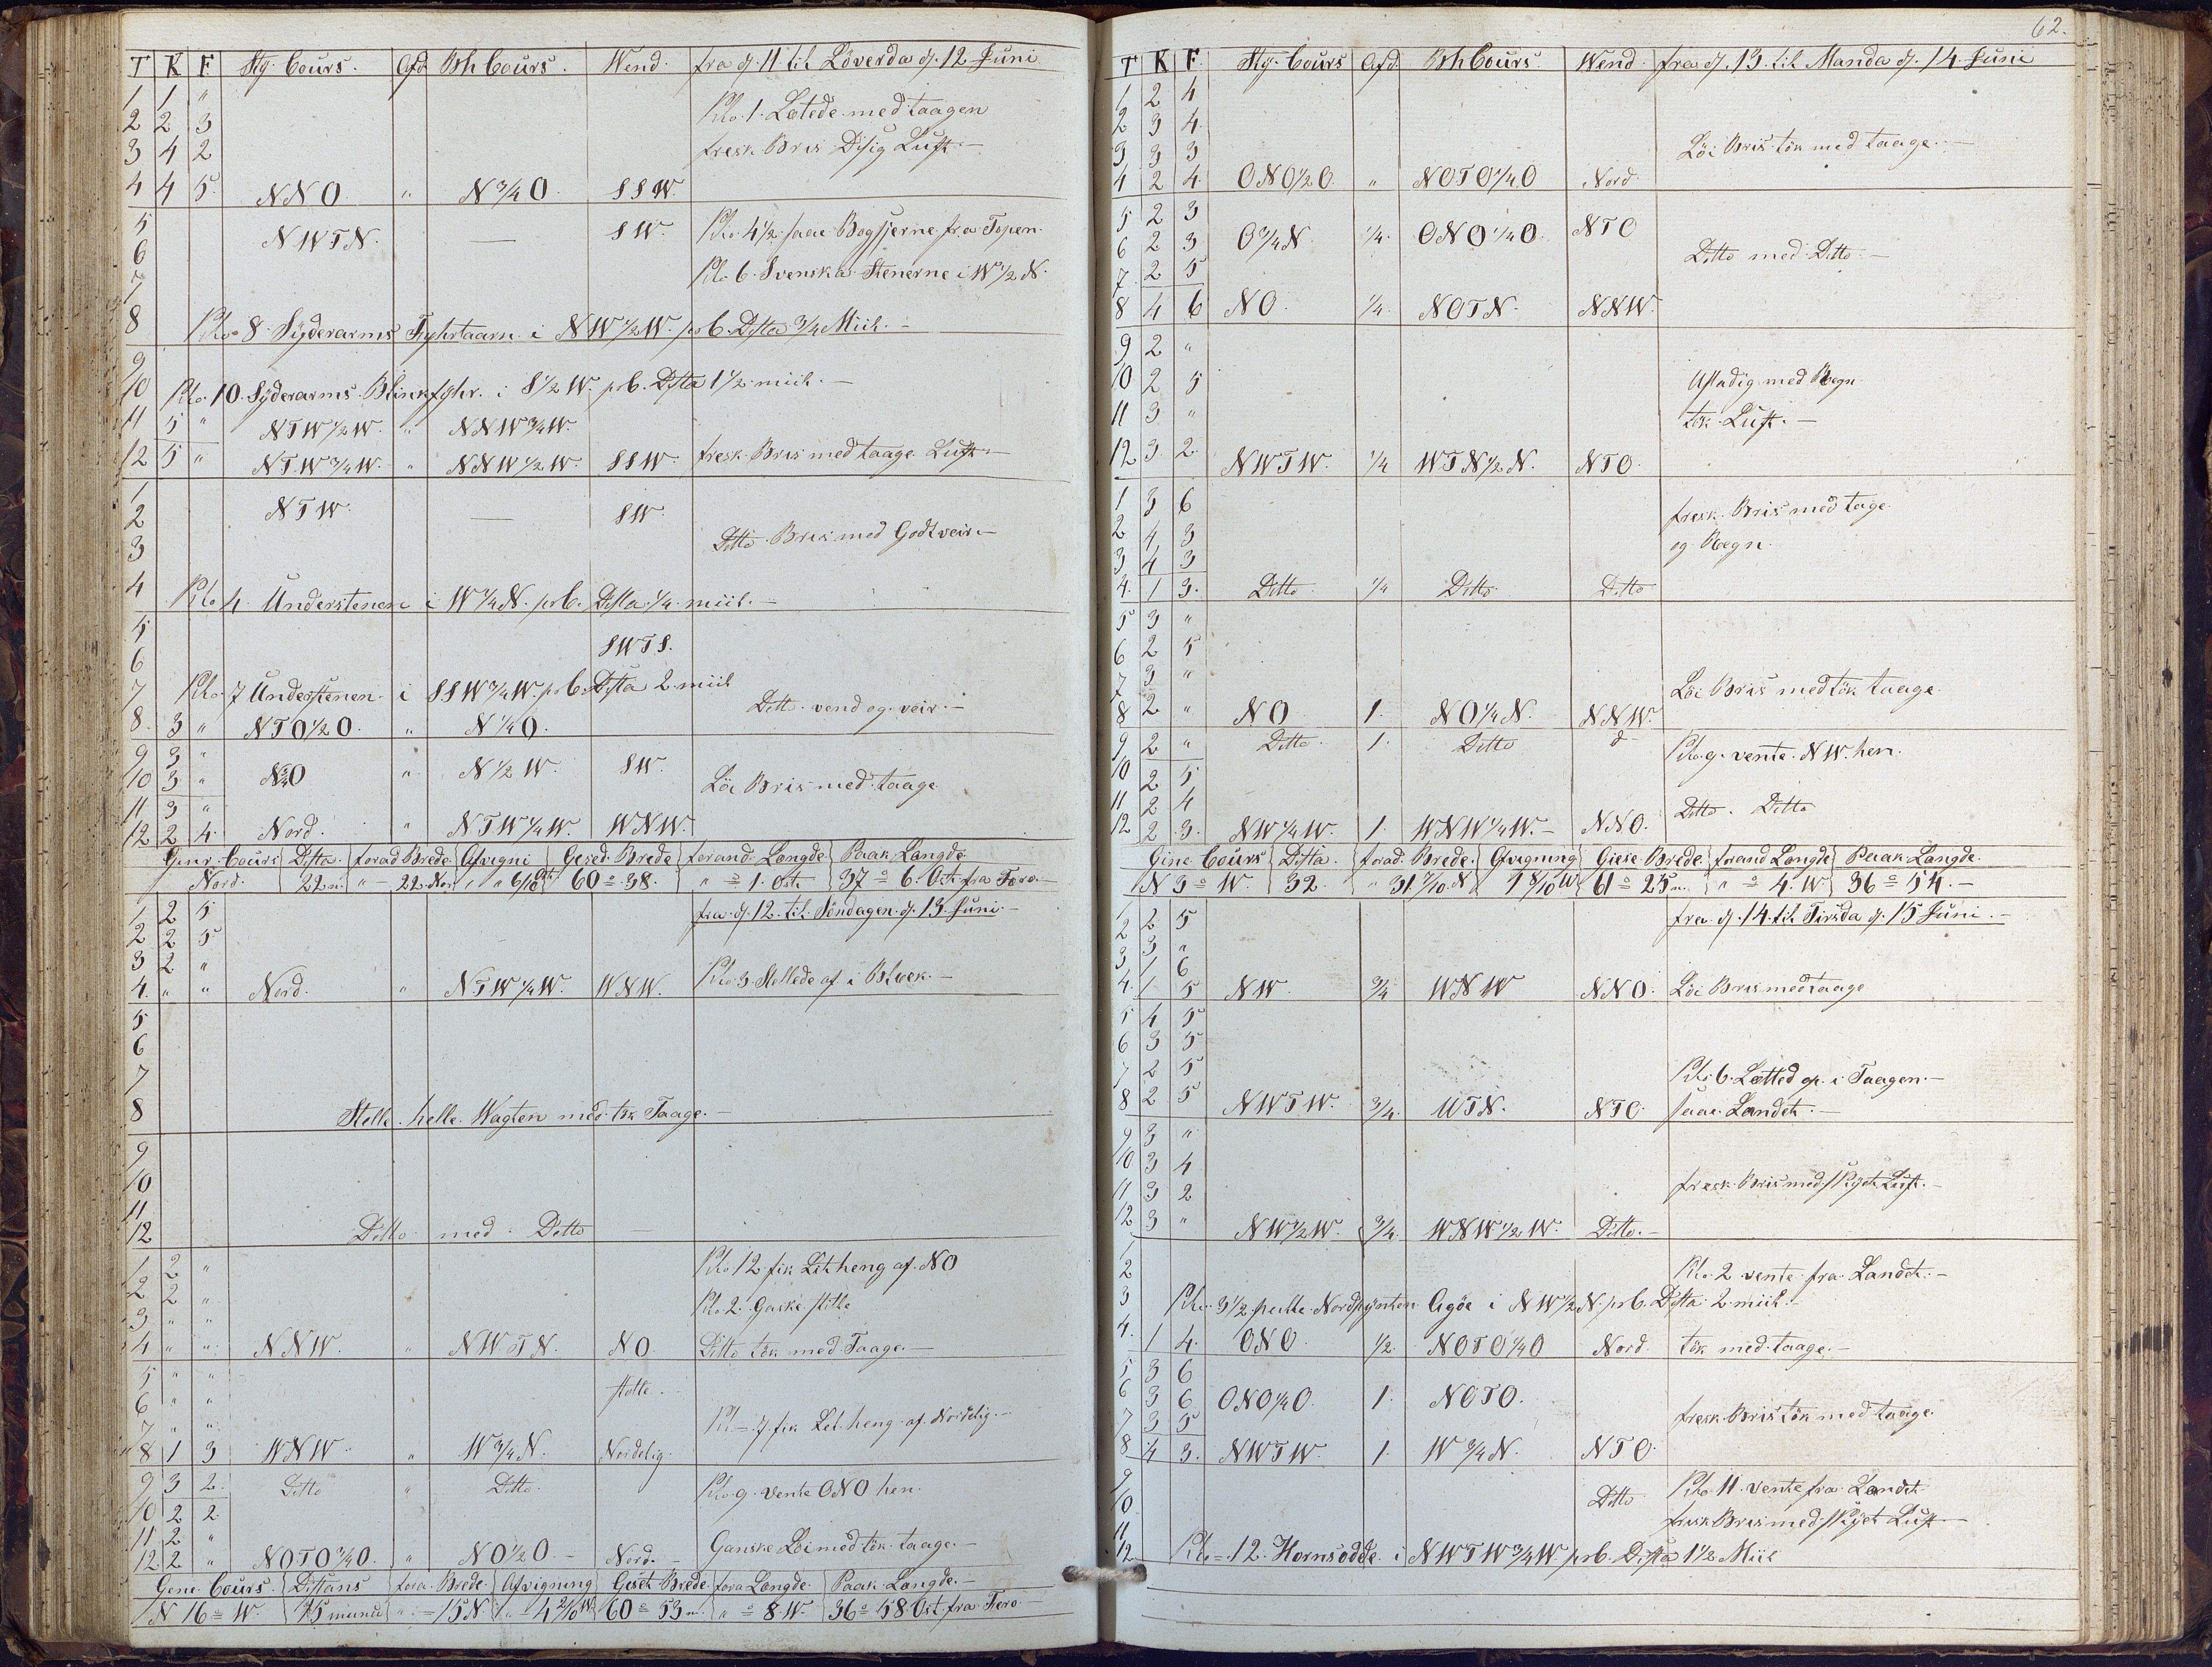 T K F Sty. Cours. Afd Bh Cours. Wend. fra d. 11 til Löverda d. 12 Juni
1 1 "
2 2 3 Klo. 1. Letede med taagen
3 4 2 fresk Bris Disig Luft.—
4 4 5. NNO " N 3/4 O. SSW.
5 NWTN. — SW. Klo. 4 1/2 saae Bogsjerne fra Topen.
6 Klo. 6. Svenska Stenerne i W 1/2 N.
7
8 Klo. 8. Syderarms Fyhrtaarn i NW 1/2 W. pr C. Dista 3/4 Miil.—
9
10 Klo. 10. Syderarms Blinkfyhr. i S 1/2 W. pr C. Dista 1 1/2 miil.—
11 5 " NTW 1/2 W. " NNW 3/4 W.
12 5 " NTW 3/4 W. " NNW 1/2 W. SSW. fresk Bris med taage Luft.—
1
2 NTW. — SW.
3 Ditto Bris med Godt veir.—
4 Klo. 4. Understenen i W 1/4 N. pr C. Dista 1/4 miil.—
5 SWTS.
6
7 Klo. 7 Understenen i SSW 3/4 W. pr C. Dista 2 miil
8. 3 " NTO 1/2 O. " N 1/4 O. Ditto. vend og veir.—
9 3 "
10 3 " " N 1/2 W. SW. Löi Bris med taage
11 3 "
12 2 4. Nord. " NTW 1/4 W. WNW.
Genr. Cours Dista. forad Brede Afvigni Gesed. Brede forand. Længde Paak Længde
Nord. 22 m. " — 22. Nor. 60° 38. " ° 1. Ost. 37° 6. Ost fra Fero.—
1 2 5 fra d. 12. til Söndagen d. 13. Juni.—
2 2 5
3 2 "
4. " " Nord. " NTW 1/4 W. WNW. Klo. 3. Stellede af i Blvek.—
5
6
7
8 Stelle. helle. Wagten med tök Taage.—
9
10
11
12 Ditto. med. Ditto —
1 2 " Klo. 12 fik Let heng af. NO
2 2 " Klo. 2. Gaske stille
3 " "
4 " " NNW. " NWTN. NO Ditto tök med Taage.—
5 " " stelle.
6 " "
7 " " Kl.= 7 fik Let heng af. Nordelig.—
8 1 3 WNW. " W 3/4 N. Nordelig.
9 3 2. Ditto " Ditto. Klo. 9. vente ONO hen.
10 2 2
11 2 "
12 2 " NOTO 3/4 O. " NO 1/2 O.— Nord.— Ganske Löi med tök taage.—
Gene. Cours. Distans fora. Brede. Afvigning Gesed Brede. fora Længde. Paak Længde.—
N 16° W. 15 minu " — 15 N " — 4 2/10 W 60° 53 m. " ° 8. W. 36° 58. Ost fra Fero.—
62.
T K F. Sty. Cours Afd. Bh Cours. Wend. fra d. 13. til Manda d. 14. Juni
1 2 4
2 3 4.
3 3 3 Löi Bris tök med taage.—
4 2 4. ONO 1/2 O. " NOTO 1/4 O Nord.
5 2 3
6 2 3 O 3/4 N. 1/4. ONO 1/4 O. NTO
7 2 5 Ditto med Ditto.—
8 4 6 NO. 1/4. NOTN. NNW.
9 2 "
10 2 5 Ustadig med Regn
11 3 " tök. Luft.—
12 3. 2. NWTW. 1/4 WTN 1/2 N. NTO.
1 3 6 fresk. Bris med tage
2 4 3 og Regn.
3 4 3
4. 1 3. Ditto. 1/4 Ditto. Ditto
5 3 "
6 2 5
7 3 " Löi Bris med tök taage.
8 2 " NO 1. NO 1/4 N. NNW.
9 2 " Ditto. 1. Ditto d— Klo. 9. vente. NW. hen.
10 2 5
11 2 4 Ditto. Ditto
12 2 3. NW 1/4 W. 1. WNW 1/4 W.— NNO.
Gine. Cours Dista. forad. Brede. Afvigning Giese. Brede. forand Længde Paak Længde.
N 3° W. 32. " 31. 7/10 N 1 8/10 W 61° 25 m. " ° 4. W. 36° 54.—
1 2 5 fra d. 14. til Tirsda d. 15 Juni.—
2 3 "
3 1 6
4. 1 5 NW. 3/4 WNW NNO. Löi Bris med taage
5 4 5
6 3 5
7 2 5 Klo. 6. Letted op. i Taagen.—
8 2 5 NWTW. 3/4. WTN. NTO. saae Landet.—
9 3 "
10 3 4
11 3 2 fresk Bris med Skyet Luft.—
12 3 " NW 1/2 W. 3/4. WNW 1/2 W. Ditto.—
1
2 Klo. 2 vente fra Landet.—
3 Klo. 3 1/2 peilte Nordpynten Agöe i NW 1/2 N. pr C. Dista 2. miil.—
4. 1 4. ONO. 1/2. NOTO 1/4 O Nord. tök med taage.—
5 3 6
6 3 6 ONO 1/4 O. 1. NOTO.
7 3 5 fresk Bris tök med taage.
8 4 3. NWTW. 1. W 3/4 N. NTO.
9 Klo. 11. vente fra Landet
10 Ditto fresk Bris med Skyet Luft.—
11
12 Klo.= 12. Hornsodde. i NWTW 3/4 W pr C. Dista 1 1/2 Miil